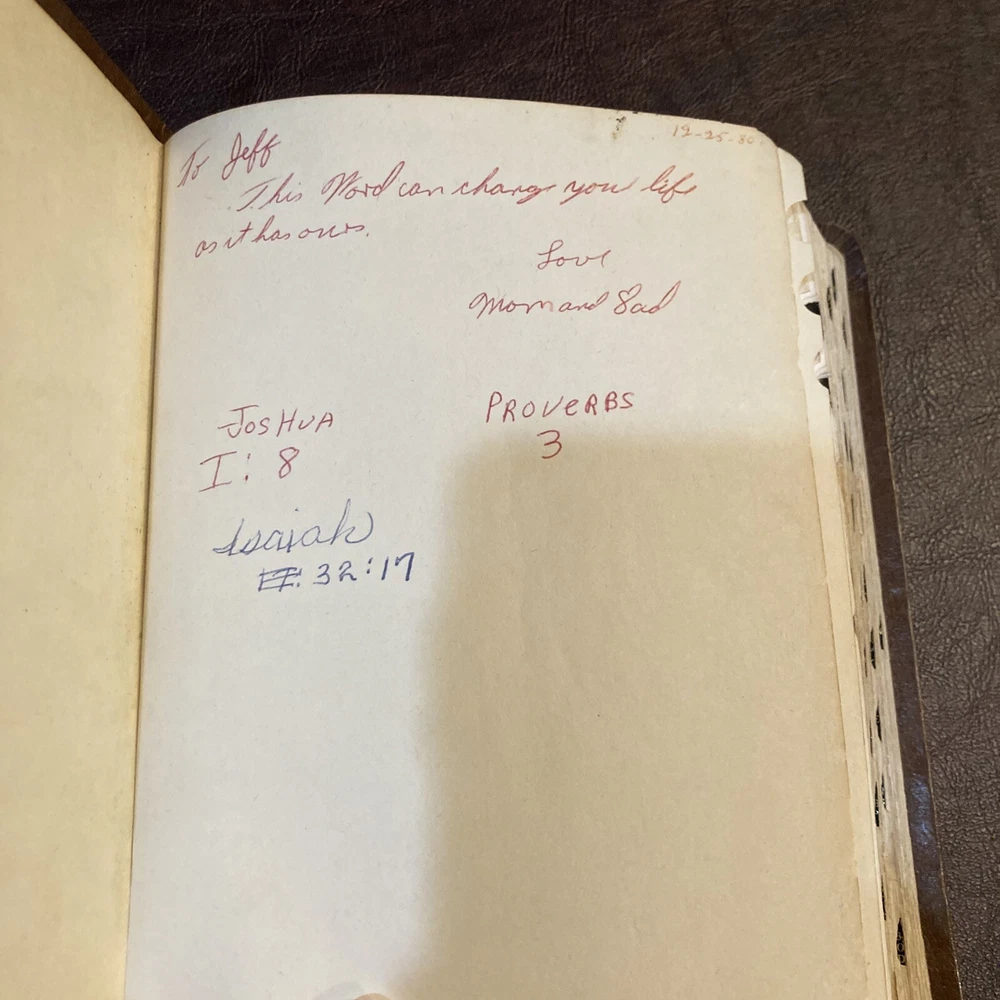 12-25-80
To Jeff
This Word can change you life
as it has ours.
Love
Mom and Dad
JOSHUA
I: 8
PROVERBS
3
Isaiah
32:17